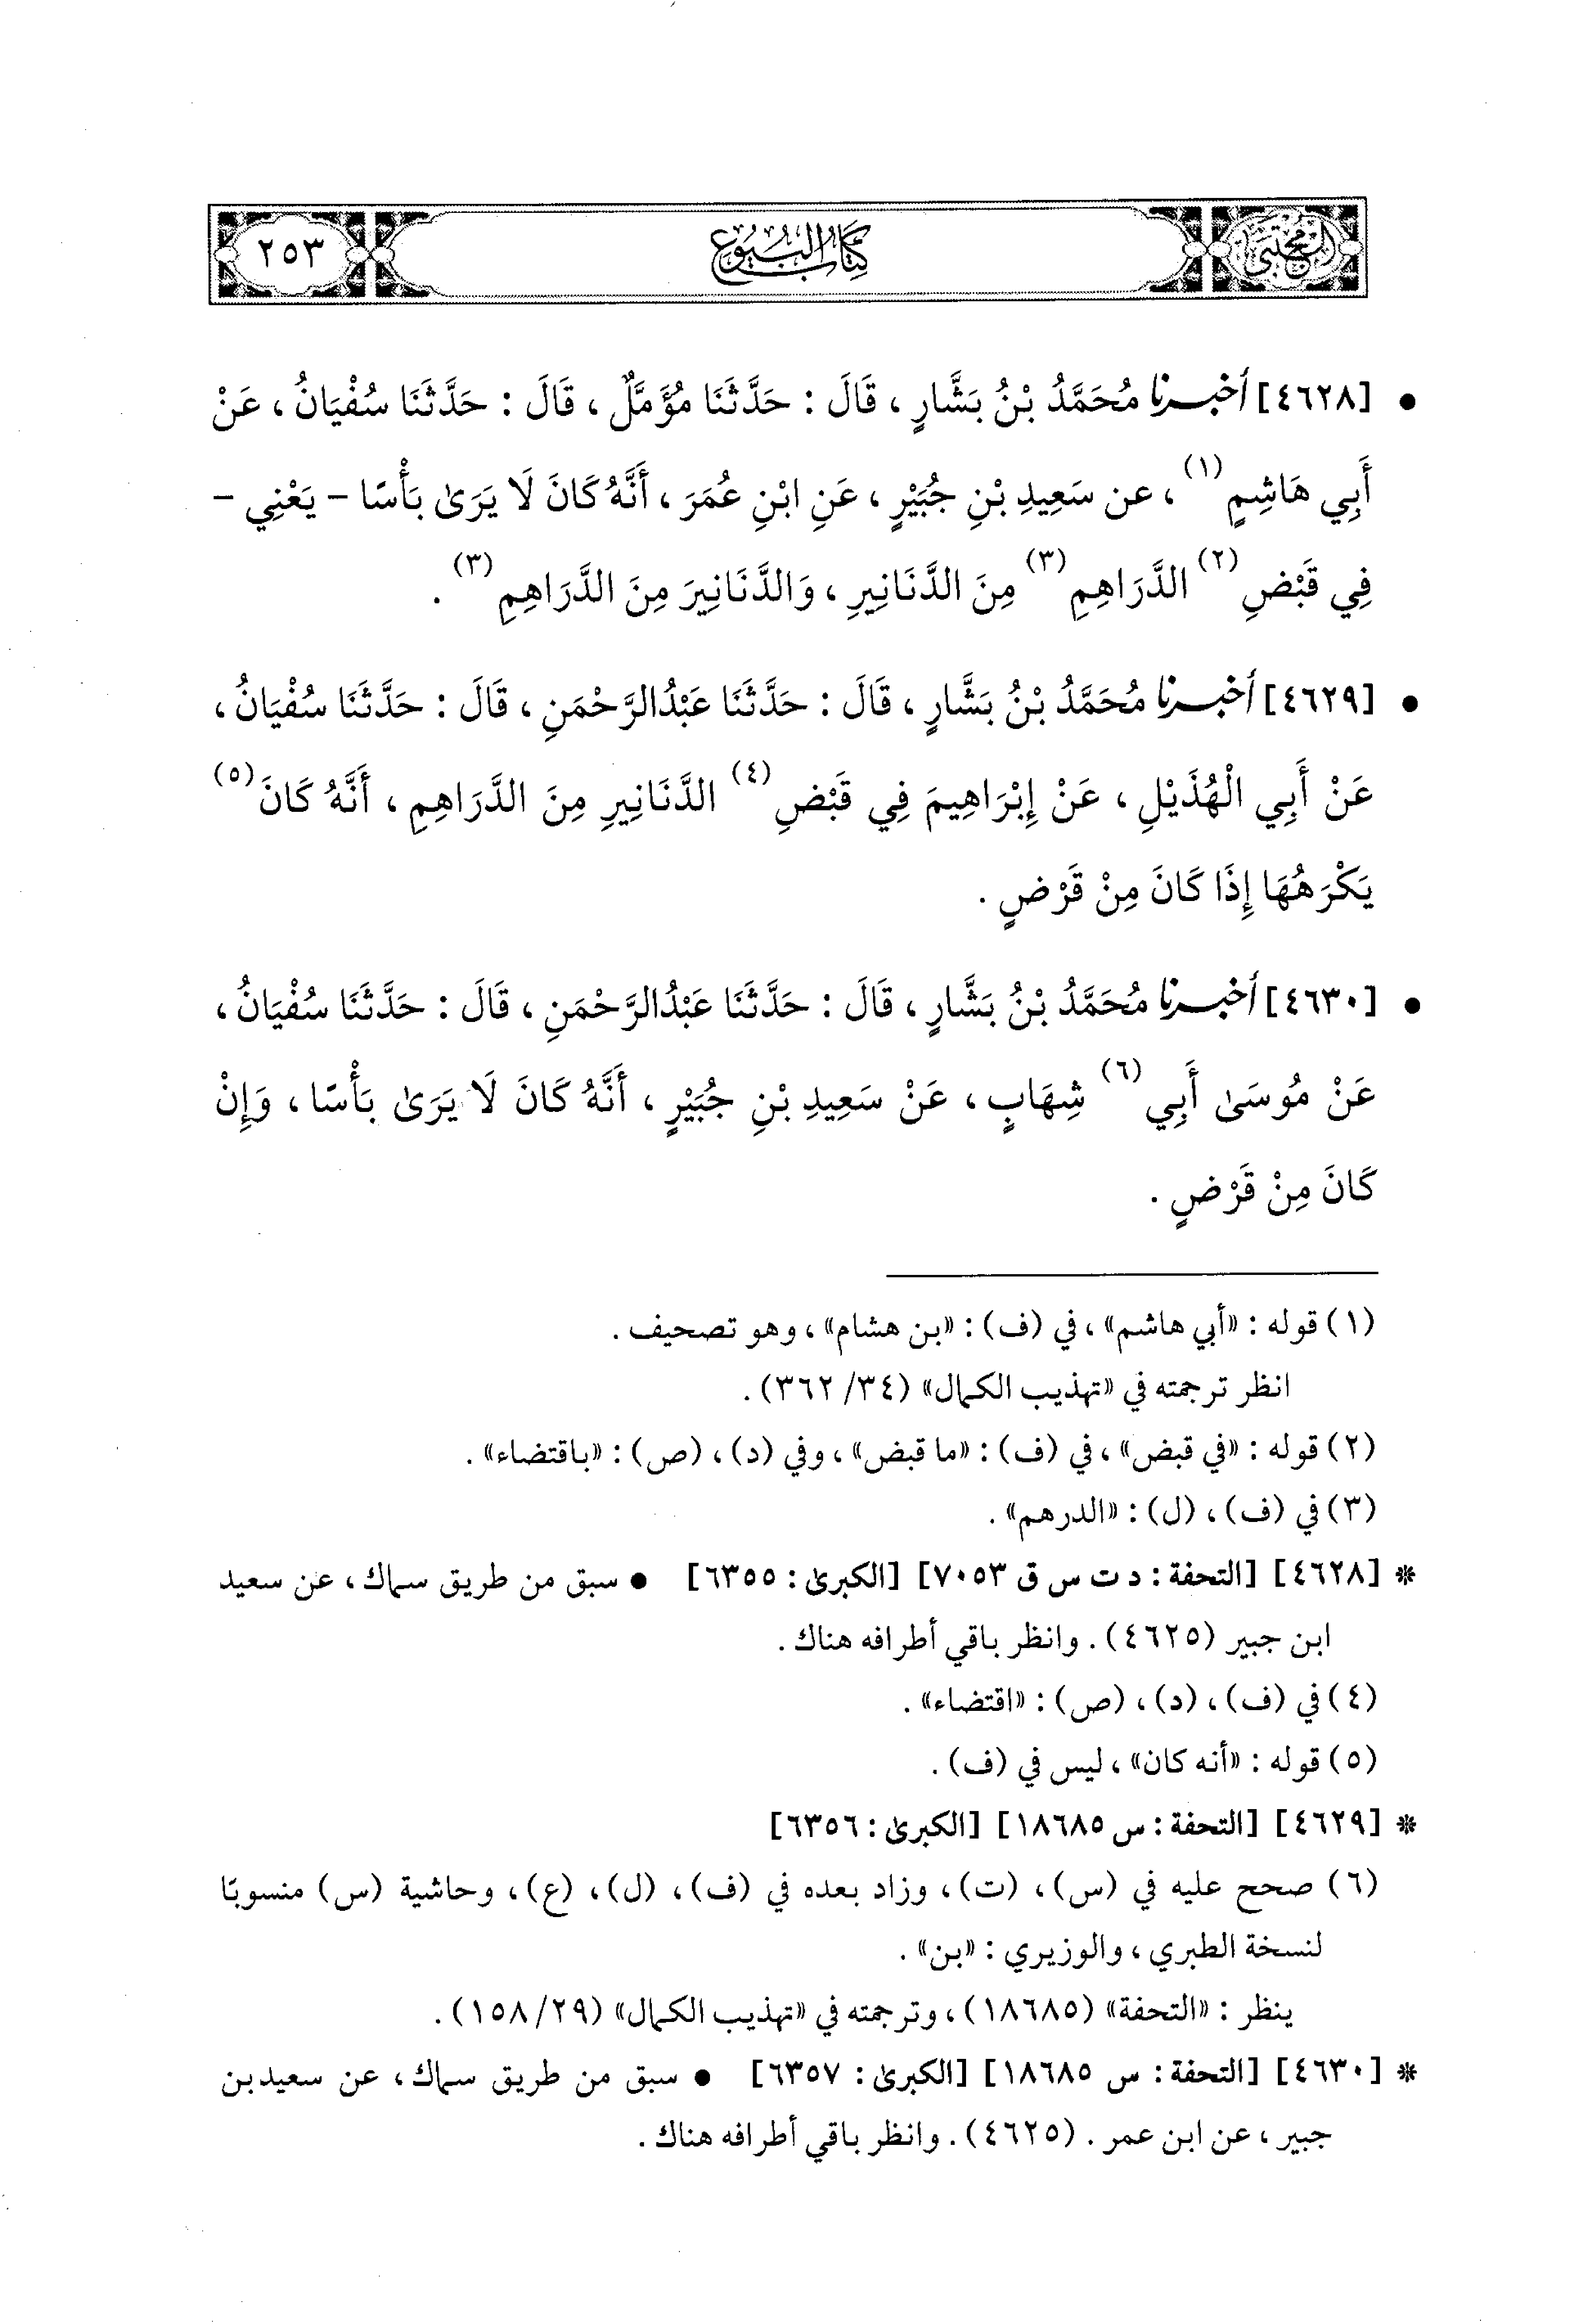 المجتبى
كتاب البيوع
٢٥٣
• [٤٦٢٨] أخبرنا مُحَمَّدُ بْنُ بَشَّارٍ ، قَالَ : حَدَّثَنَا مُؤَمَّلٌ ، قَالَ : حَدَّثَنَا سُفْيَانُ ، عَنْ
أَبِي هَاشِمٍ (١) ، عن سَعِيدِ بْنِ جُبَيْرٍ ، عَنِ ابْنِ عُمَرَ ، أَنَّهُ كَانَ لَا يَرَىٰ بَأْسًا - يَعْنِي -
فِي قَبْضِ (٢) الدَّرَاهِمِ (٣) مِنَ الدَّنَانِيرِ ، وَالدَّنَانِيرَ مِنَ الدَّرَاهِمِ (٣) .
• [٤٦٢٩] أخبرنا مُحَمَّدُ بْنُ بَشَّارٍ ، قَالَ : حَدَّثَنَا عَبْدُالرَّحْمَنِ ، قَالَ : حَدَّثَنَا سُفْيَانُ ،
عَنْ أَبِي الْهُذَيْلِ ، عَنْ إِبْرَاهِيمَ فِي قَبْضِ (٤) الدَّنَانِيرِ مِنَ الدَّرَاهِمِ ، أَنَّهُ كَانَ (٥)
يَكْرَهُهَا إِذَا كَانَ مِنْ قَرْضٍ .
• [٤٦٣٠] أخبرنا مُحَمَّدُ بْنُ بَشَّارٍ ، قَالَ : حَدَّثَنَا عَبْدُالرَّحْمَنِ ، قَالَ : حَدَّثَنَا سُفْيَانُ ،
عَنْ مُوسَىٰ أَبِي (٦) شِهَابٍ ، عَنْ سَعِيدِ بْنِ جُبَيْرٍ ، أَنَّهُ كَانَ لَا يَرَىٰ بَأْسًا ، وَإِنْ
كَانَ مِنْ قَرْضٍ .
(١) قوله : «أبي هاشم» ، في (ف) : «بن هشام» ، وهو تصحيف .
انظر ترجمته في «تهذيب الكمال» (٣٤/ ٣٦٢) .
(٢) قوله : «في قبض» ، في (ف) : «ما قبض» ، وفي (د) ، (ص) : «باقتضاء» .
(٣) في (ف) ، (ل) : «الدرهم» .
* [٤٦٢٨] [التحفة : د ت س ق ٧٠٥٣] [الكبرىٰ : ٦٣٥٥] • سبق من طريق سماك ، عن سعيد
ابن جبير (٤٦٢٥) . وانظر باقي أطرافه هناك .
(٤) في (ف) ، (د) ، (ص) : «اقتضاء» .
(٥) قوله : «أنه كان» ، ليس في (ف) .
* [٤٦٢٩] [التحفة : س ١٨٦٨٥] [الكبرىٰ : ٦٣٥٦]
(٦) صحح عليه في (س) ، (ت) ، وزاد بعده في (ف) ، (ل) ، (ع) ، وحاشية (س) منسوبًا
لنسخة الطبري ، والوزيري : «بن» .
ينظر : «التحفة» (١٨٦٨٥) ، وترجمته في «تهذيب الكمال» (٢٩/ ١٥٨) .
* [٤٦٣٠] [التحفة : س ١٨٦٨٥] [الكبرىٰ : ٦٣٥٧] • سبق من طريق سماك ، عن سعيد بن
جبير ، عن ابن عمر . (٤٦٢٥) . وانظر باقي أطرافه هناك .